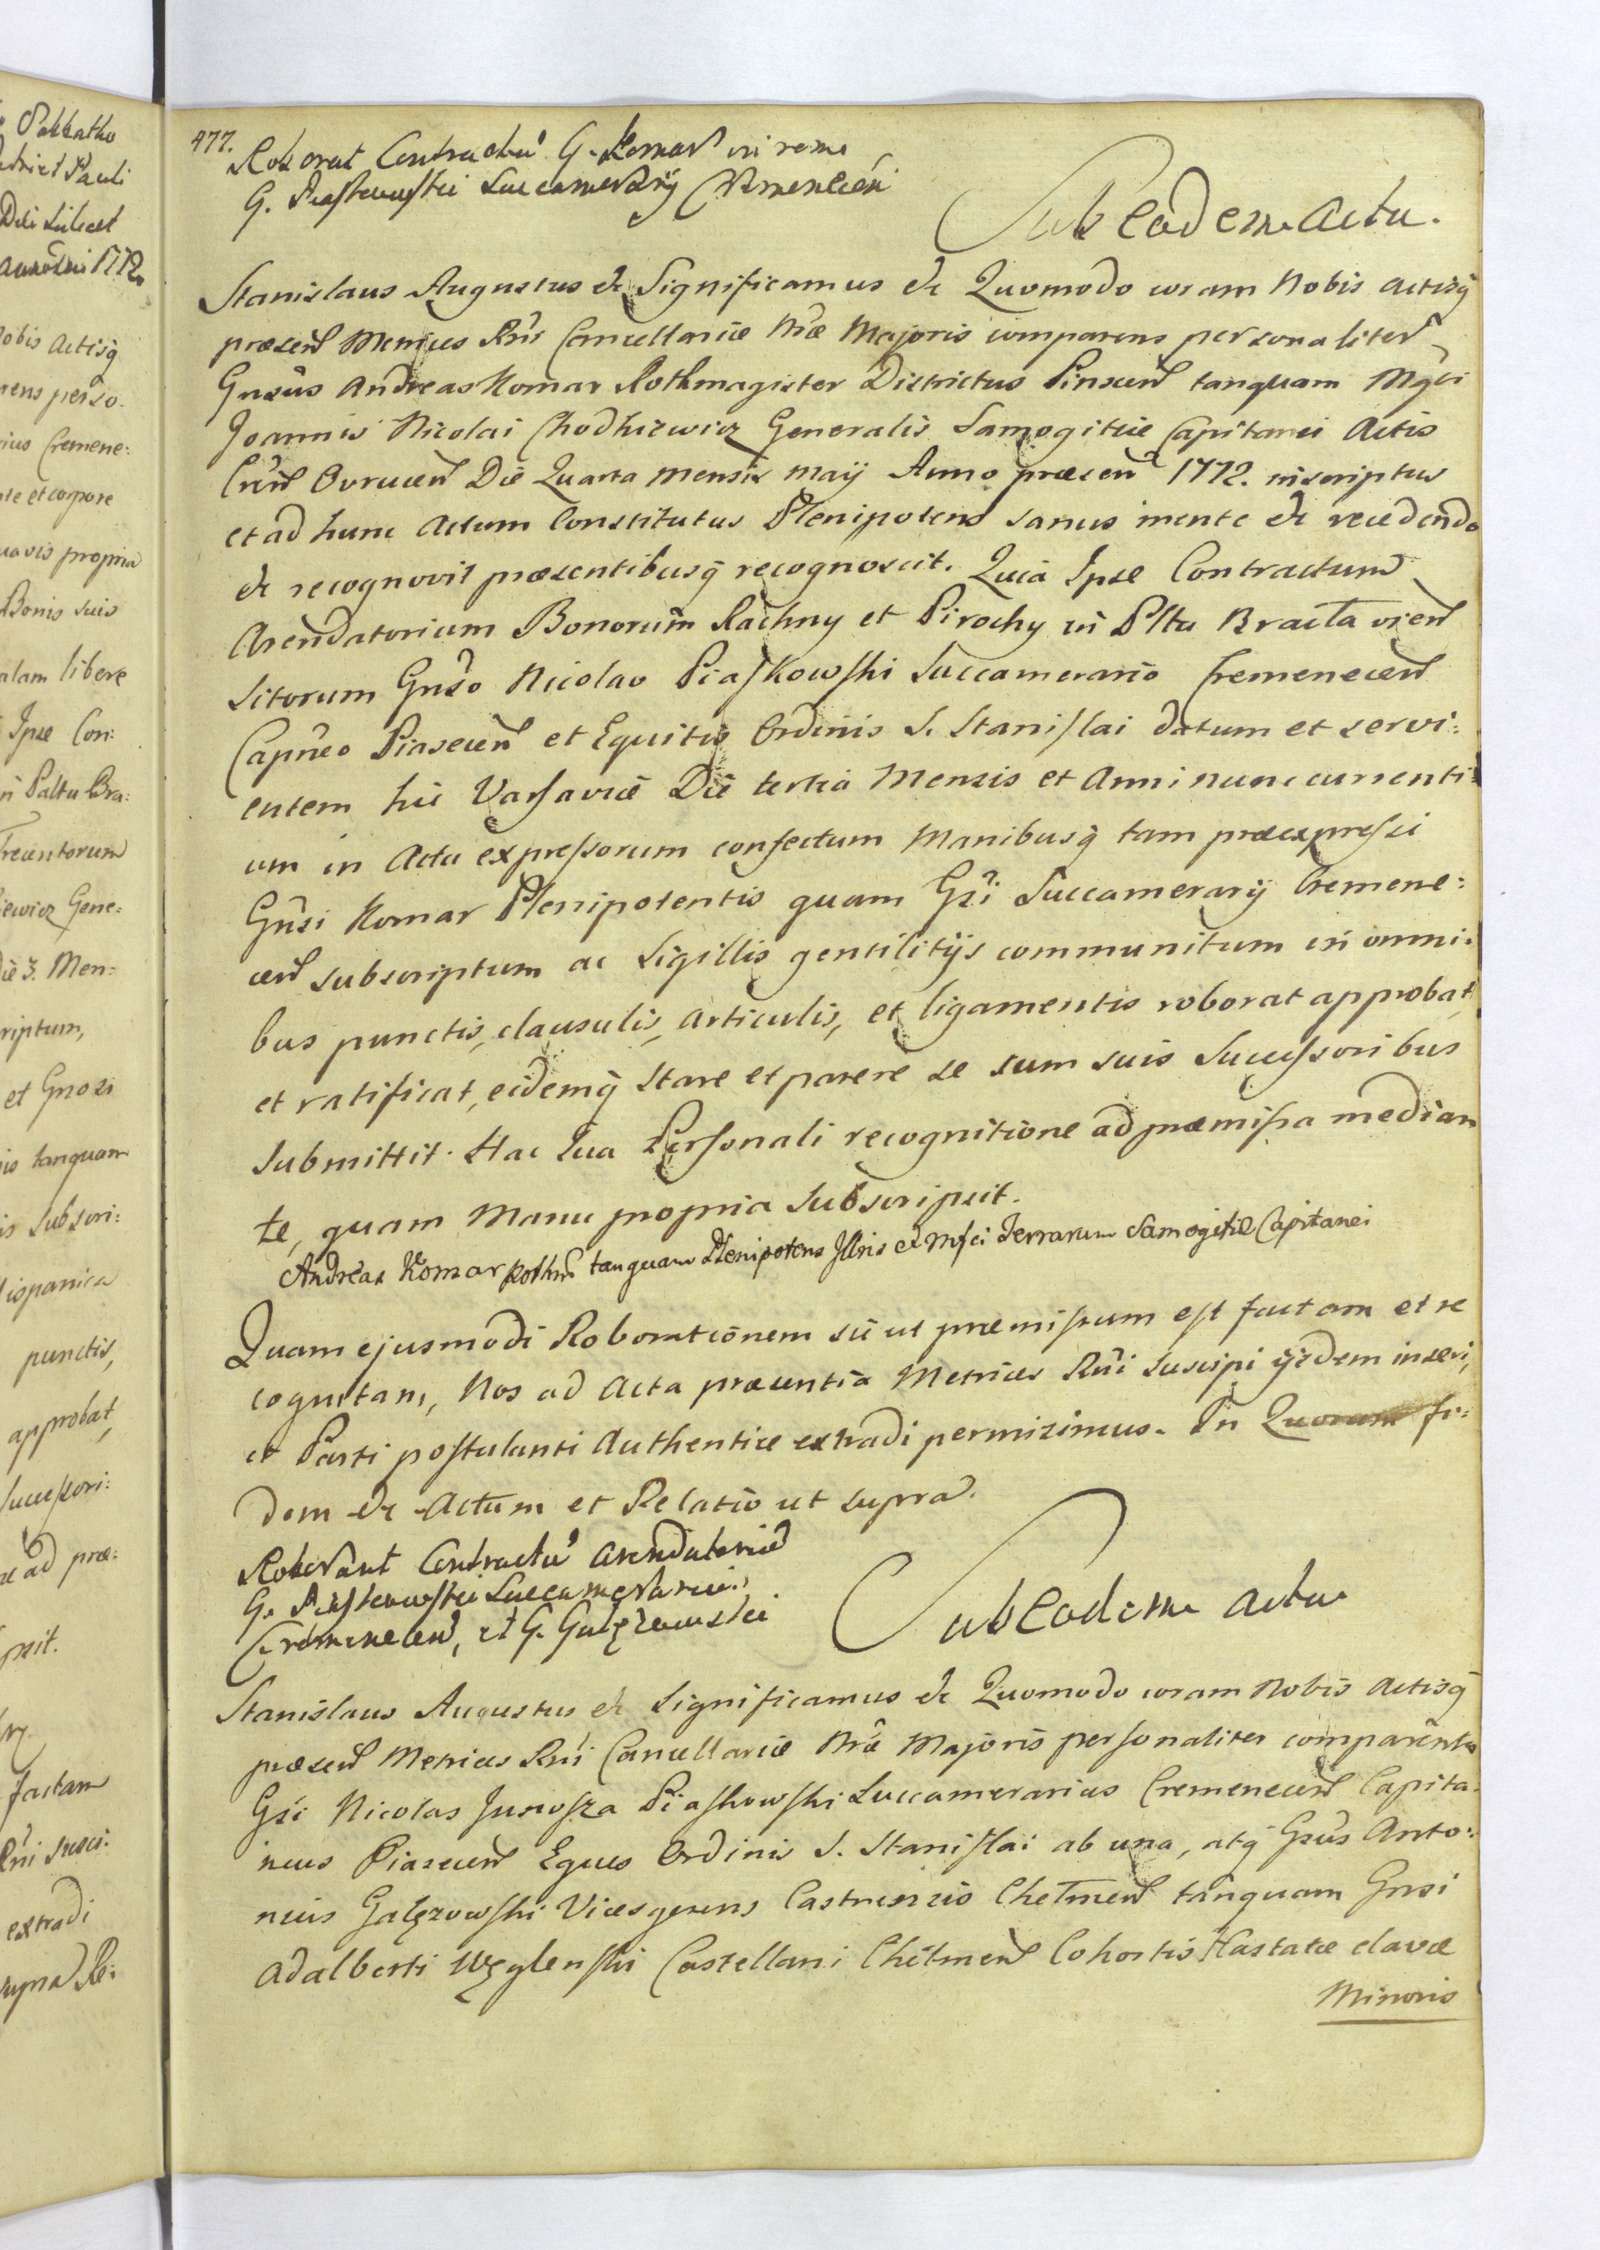 Pakkatho
Pauli
Dei
1772.
Nobis Actisq̃
mens perso:
rius Cremene:
nte et corpore
uavis propria
Bonis suis
alam libere
Ipse Con:
in Paltu Bra:
Trecentorum
iewicz Gene:
die 3. Men:
riptum,
et Gnosi
tanquam
is subscri:
ispanica
punctis,
approbat,
Successori:
ad præ:
psit.
factam
Rñi susci:
extradi
supra Re:
477.
Roborat Contractũ G. Komar in rem
G. Piaskowski Succamerarij Cremenecen̄
Sub eodem actu.
Stanislaus Augustus &c Significamus &c Quomodo coram Nobis Actisq̃
præsen̄ Metrices Rñi Cancellariæ Nr̃æ Majoris comparens personaliter
Gnsũs Andreas Komar Rothmagister Districtus Pinscen̄ tanquam Mg̃ci
Joannis Nicolai Chodkiewicz Generalis Samogitiæ Capitanei Actis
Cr̃en̄ Ovrucen̄ Die Quarta Mensis Maij Anno præsen̄ 1772. inscriptus
et ad hunc Actum Constitutus Plenipotens sanus mente &c recedendo
&c recognovit præsentibusq̃ recognoscit. Quia Ipse Contractum
Arendatorium Bonorum Rachny et Pirochy in Pltu Bracłavien̄
sitorum Gnso Nicolao Piaskowski Succamerario Cremenecen̄
Capñeo Piasecen̄ et Equitis Ordinis S. Stanislai datum et servi:
entem hic Varsaviæ Die tertia Mensis et Anni nunc currenti:
um in Actu expressorum confectum Manibusq̃ tam præexpressi
Gñsi Komar Plenipotentis quam Gs̃i Succamerarij Cremene:
cen̄ subscriptum ac Sigillis gentilitijs communitum in omni:
bus punctis, clausulis, articulis, et ligamentis roborat approbat,
et ratificat, eidemq̃ stare et parere se cum suis Successoribus
submittit. Hac Sua Personali recognitione ad præmissa median
te, quam Manu propria subscripsit.
Andreas Komar Rothm̃ tanquam Plenipotens Jllris et Mfci Terrarum Samogitiæ Capitanei
Quam ejusmodi Roborationem sic ut præmissum est factam et re
cognitam, Nos ad Acta præsentia Metrices Rñi suscipi ijsdem inseri,
et Parti postulanti Authentice extradi permisimus. In Quorum fi:
dem &c Actum et Relatio ut supra.
Roborant Contractũ Arendatoriũ
G. Piaskowski Succamerarius
Cremenecen̄, et G. Gałęzowski
Sub eodem actu
Stanislaus Augustus &c Significamus &c Quomodo coram Nobis Actisq̃
præsen̄ Metrices Rñi Cancellariæ Nr̃æ Majoris personaliter comparente
Gs̃i Nicolas Junosza Piaskowski Succamerarius Cremenecen̄ Capita:
neus Piasecen̄ Eques Ordinis S. Stanislai ab una, atq̃ Gsũs Anto:
nius Gałęzowski Vicesgerens Castrensis Chełmen̄ tanquam Gnsi
Adalberti Węglenski Castellani Chełmen̄ Cohortis Hastatæ clavæ
Minoris